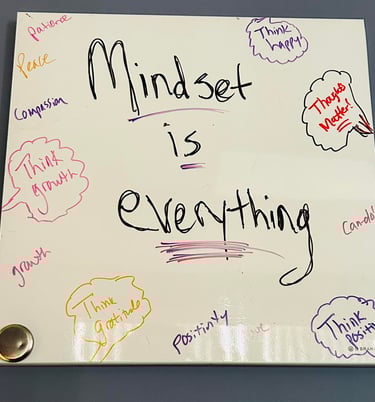 Patience
Peace
Compassion
Think
happy
Mindset
is
everything
Thoughts
Matter!
Think
growth
growth
Can-do!
Think
gratitude
Positivity
Think
positive